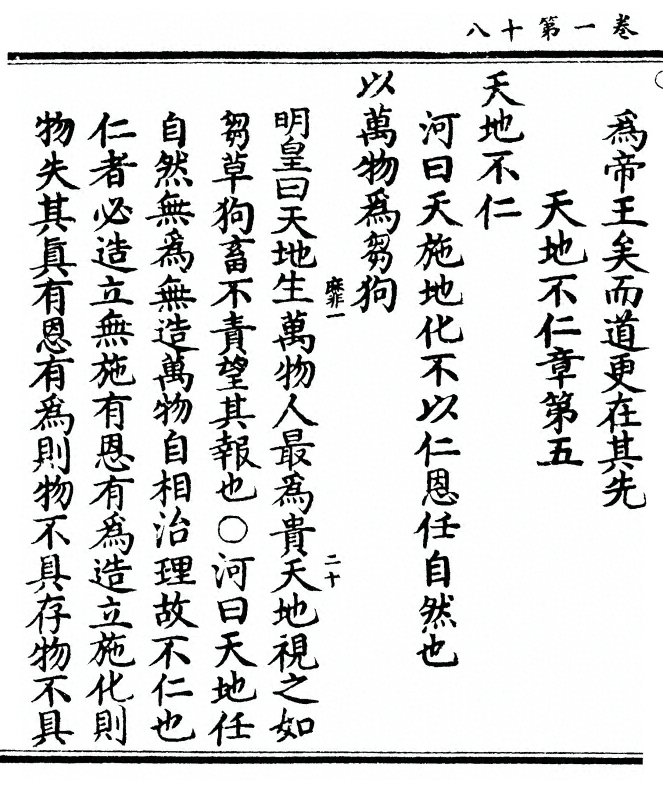 卷一第十八
爲帝王矣而道更在其先
天地不仁章第五
天地不仁
河曰天施地化不以仁恩任自然也
以萬物爲芻狗
靡非一
二十
明皇曰天地生萬物人最爲貴天地視之如
芻草狗畜不責望其報也○河曰天地任
自然無爲無造萬物自相治理故不仁也
仁者必造立無施有恩有爲造立施化則
物失其眞有恩有爲則物不具存物不具